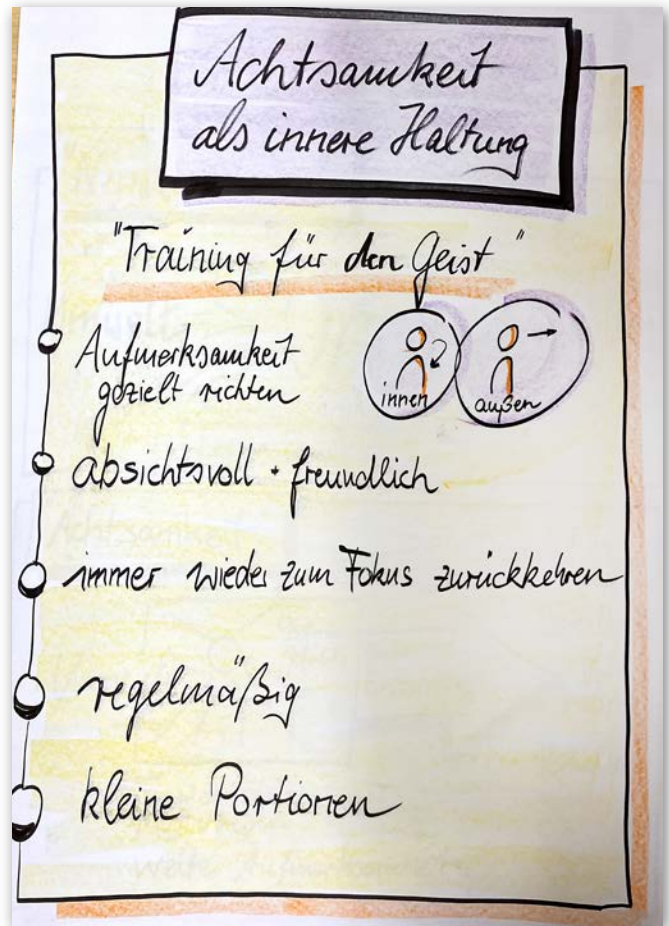 Achtsamkeit
als innere Haltung
"Training für den Geist"
Aufmerksamkeit
gezielt richten
innen
außen
absichtsvoll + freundlich
immer wieder zum Fokus zurückkehren
regelmäßig
kleine Portionen